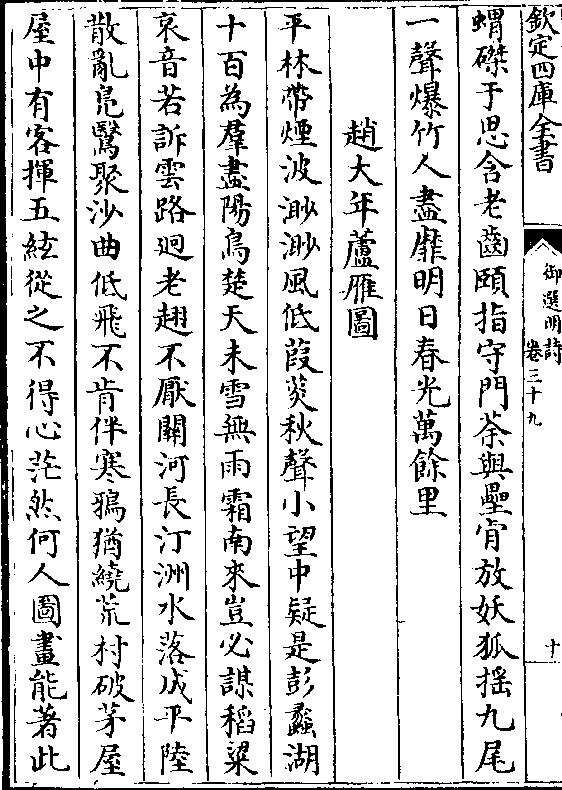 欽定四庫全書
御選明詩
卷三十九
十
蝟磔于思含老齒頤指守門荼與壘肯放妖狐揺九尾
一聲爆竹人盡靡明日春光萬餘里
趙大年蘆雁圖
平林帶煙波渺渺風低葭菼秋聲小望中疑是彭蠡湖
十百為羣盡陽鳥楚天未雪無雨霜南來豈必謀稻粱
哀音若訴雲路迥老翅不厭關河長汀洲水落成平陸
散亂鳬鷖聚沙曲低飛不肯伴寒鴉猶繞荒村破茅屋
屋中有客揮五絃從之不得心茫然何人圖畫能著此